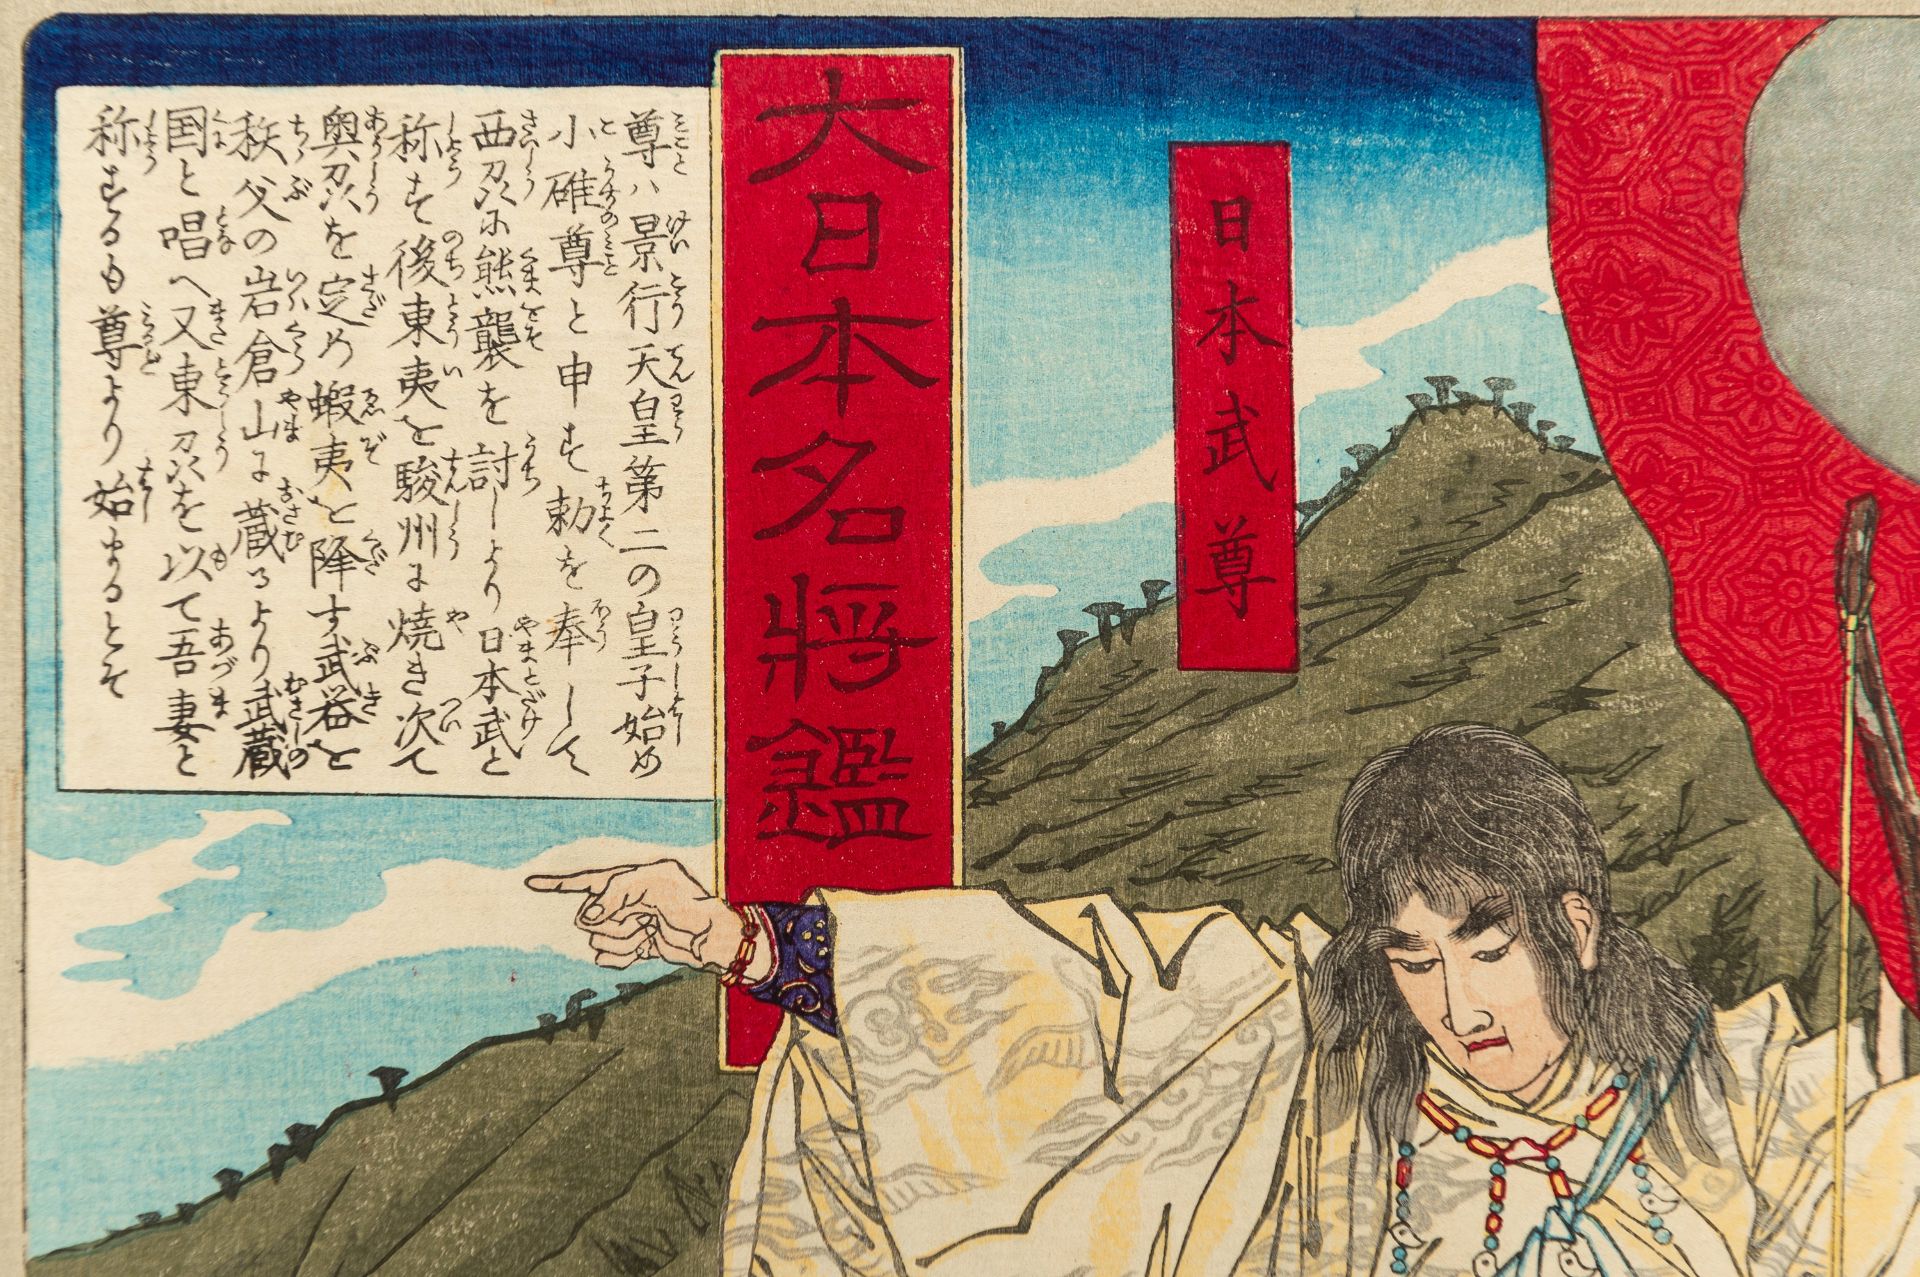 日本武尊
大日本名將鑑
尊ハ景行天皇第二の皇子始め
小碓尊と申す勅を奉して
西刕に熊襲を討しより日本武と
称す後東夷を駿州に焼き次て
奥刕を定め蝦夷を降す武器を
秩父の岩倉山に蔵るより武蔵
国と唱へ又東刕を以て吾妻と
称するも尊より始まるとそ